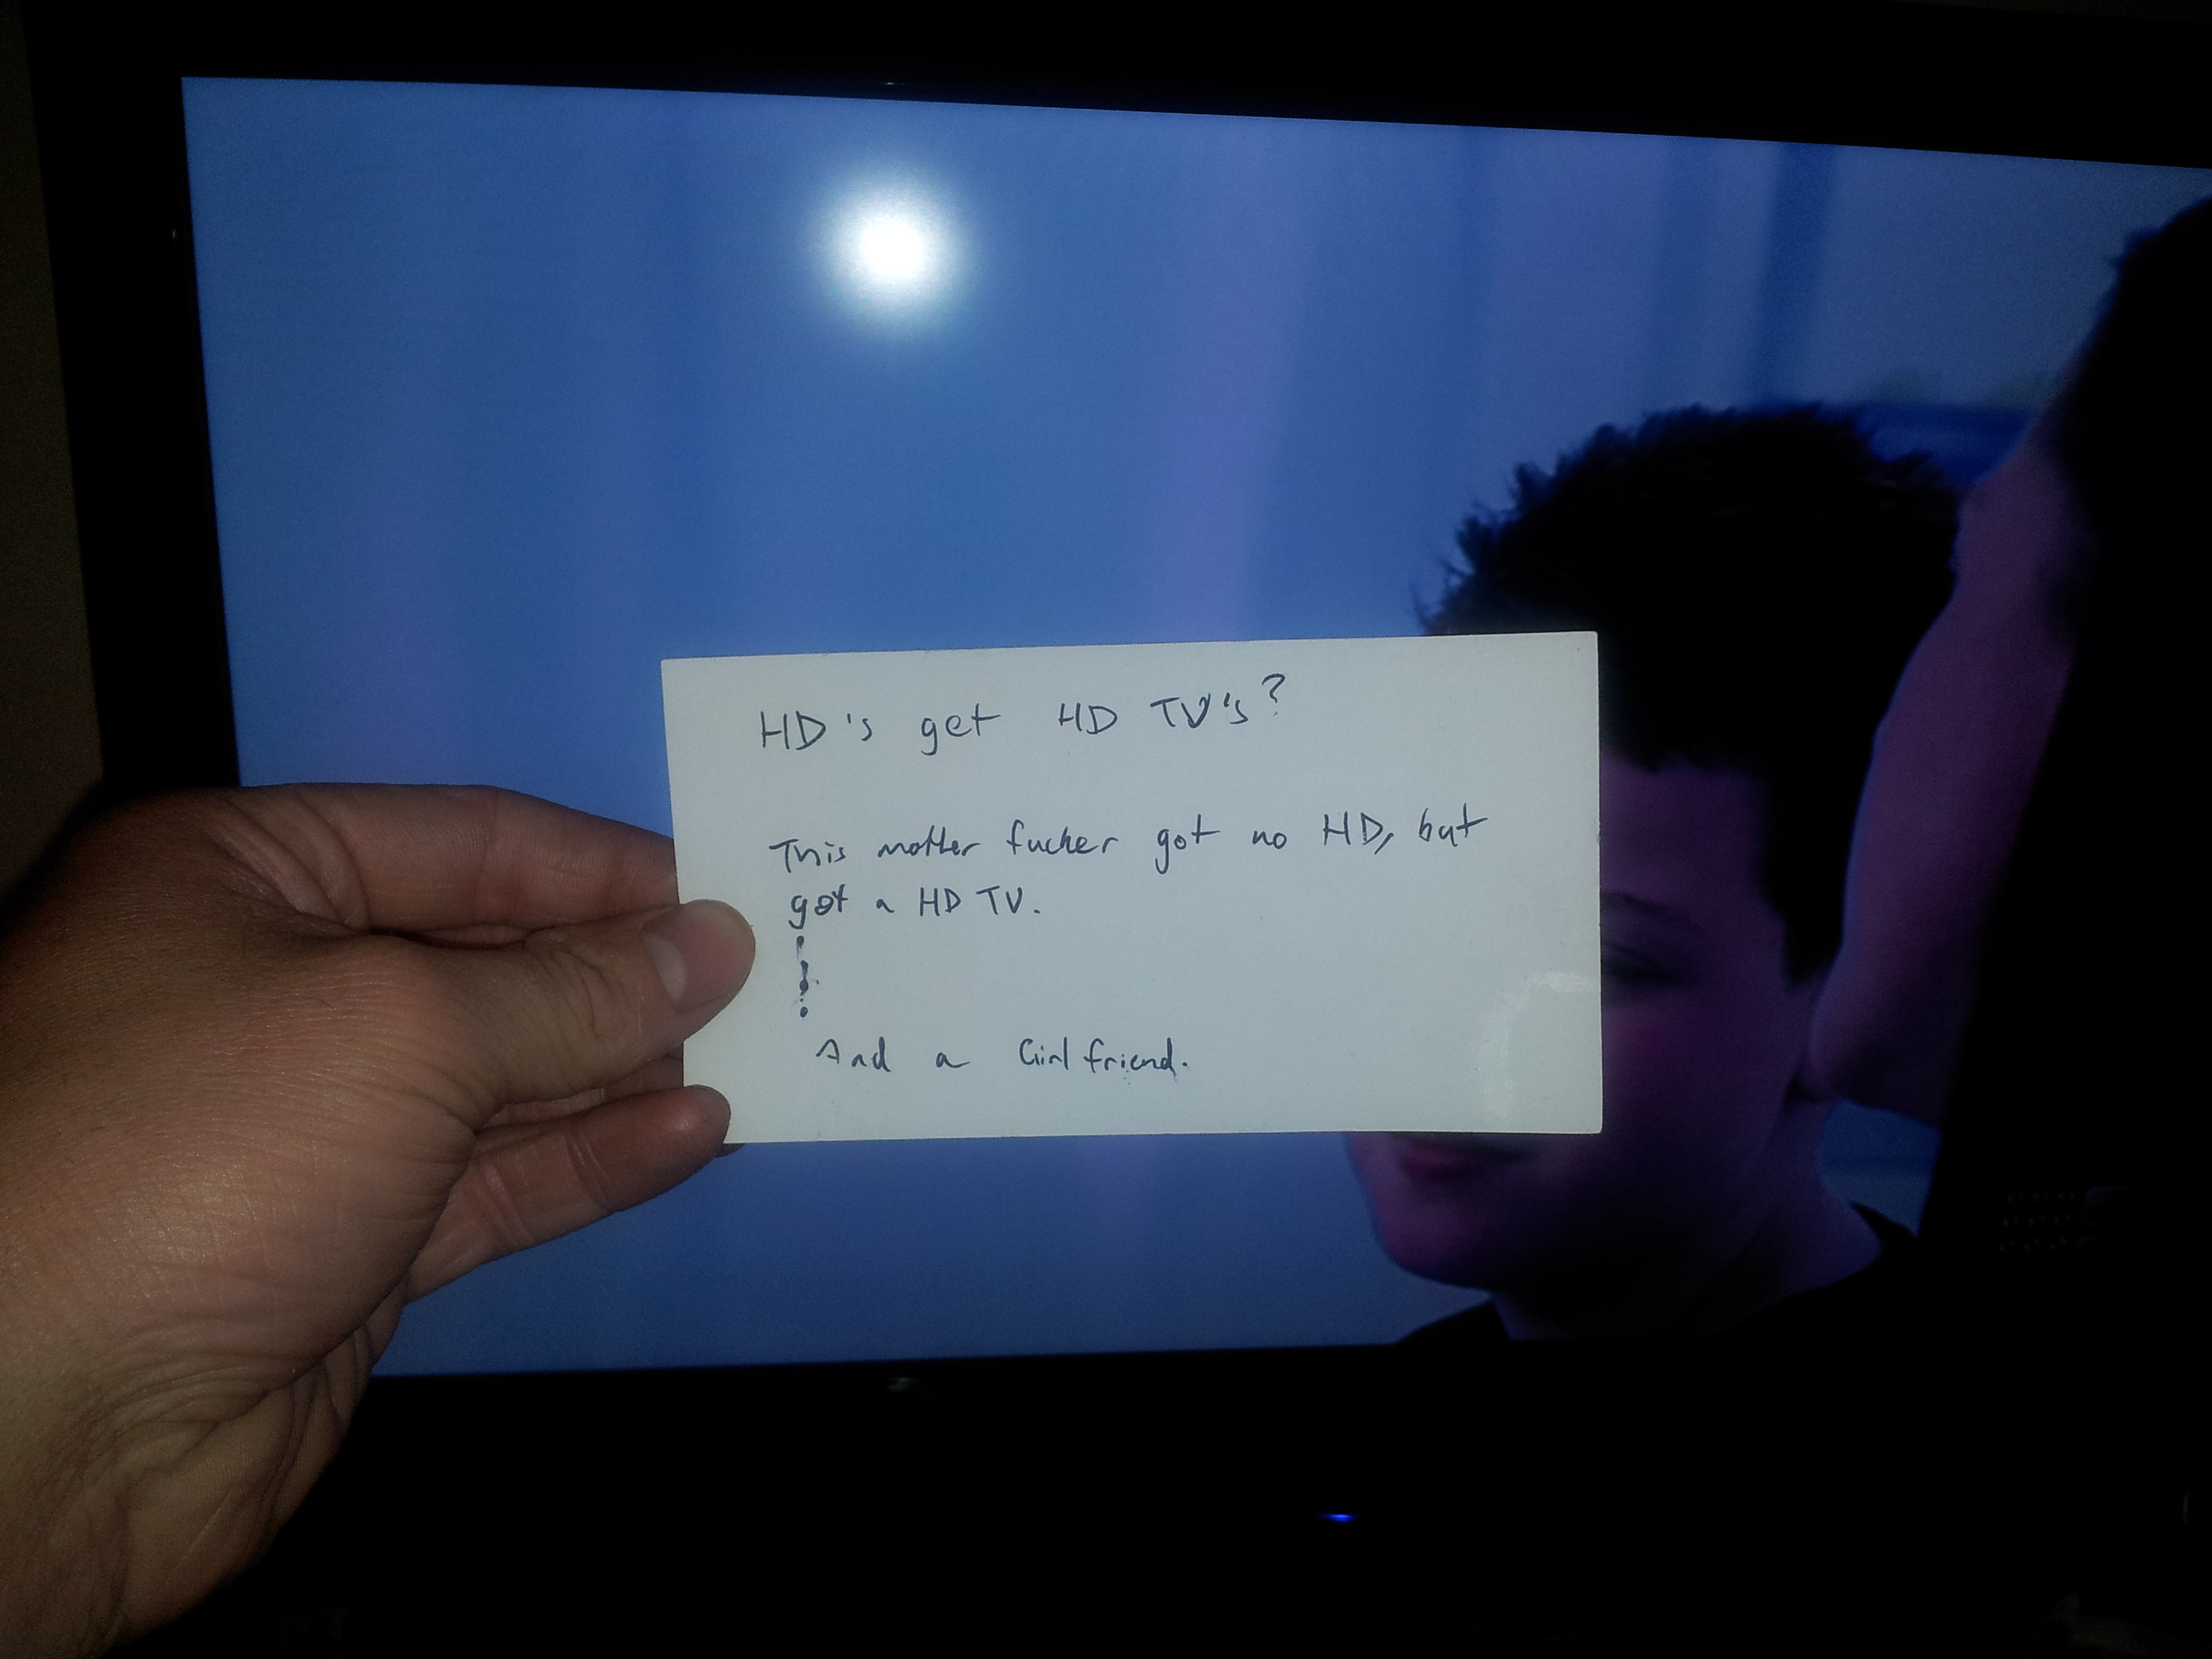 HD's get HD TV's?
This mother fucker got no HD, but
got a HD TV.
And a Girlfriend.